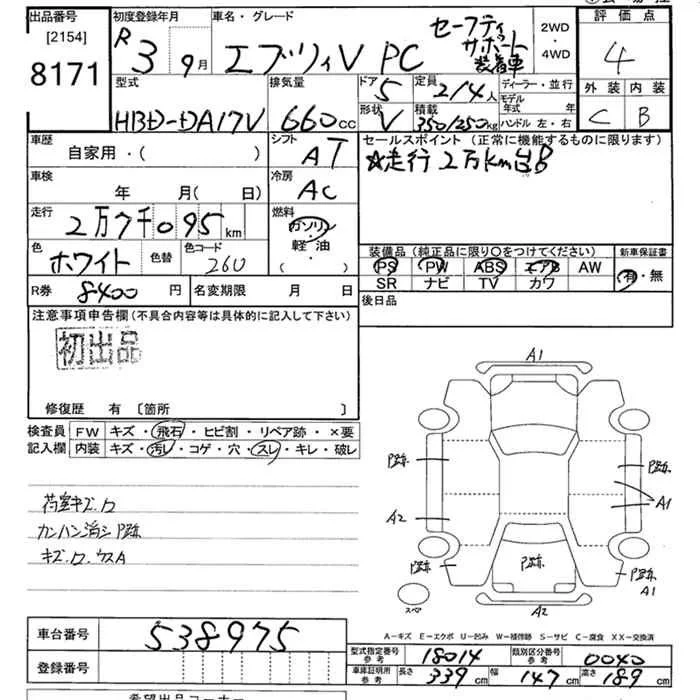 出品番号
[2154]
8171
初度登録年月
R 3 9月
車名・グレード
エブリィV PC
セーフティ
サポート
装着車
2WD
・
4WD
評価点
4
外装 内装
C B
型式
HBD-DA17V
排気量
660cc
ドア 5
形状 V
定員 2/4人
積載 350/250kg
ディーラー・並行
モデル年式 年
ハンドル 左・右
車歴
自家用・( )
シフト AT
車検
年 月( 日)
冷房 AC
走行 2万7千095km
燃料
ガソリン
軽油
( )
色 ホワイト 色替
色コード 260
R券 8400円
名変期限 月 日
セールスポイント (正常に機能するものに限ります)
☆走行 2万km台
装備品 (純正品に限り〇をつけてください)
PS PW ABS エアB AW
SR ナビ TV カワ
新車保証書
有・無
後日品
注意事項申告欄(不具合内容等は具体的に記入して下さい)
初出品
修復歴 有 [箇所 ]
検査員 FW キズ・飛石・ヒビ割・リペア跡・×要
記入欄 内装 キズ・汚レ・コゲ・穴・スレ・キレ・破レ
荷室キズ.凹
カンバン消シP跡
キズ.凹.ウスA
A1
P跡
P跡
A2
A1
P跡
P跡
P跡
A1
スペア
A2
A－キズ E－エクボ U－凹み W－補修跡 S－サビ C－腐食 XX－交換済
車台番号 538975
登録番号
型式指定番号 参考 18014
類別区分番号 参考 0040
車庫証明用 参考 長さ 339cm 幅 147cm 高さ 189cm
希望出品コーナー